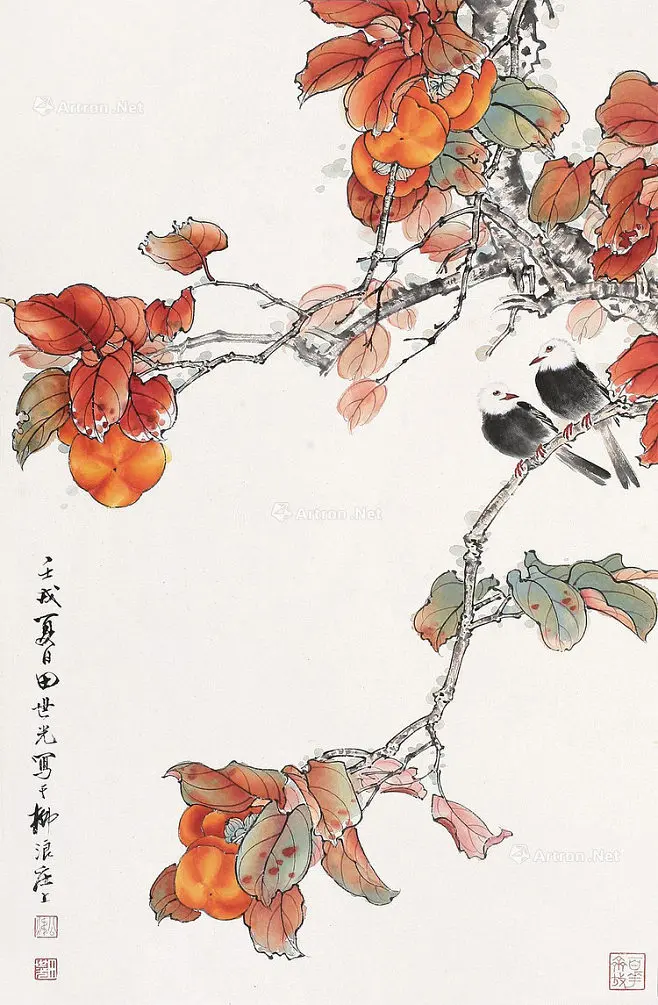 Artron.Net
Artron.Net
壬戌夏日田世光寫于柳浪庄上
Artron.Net